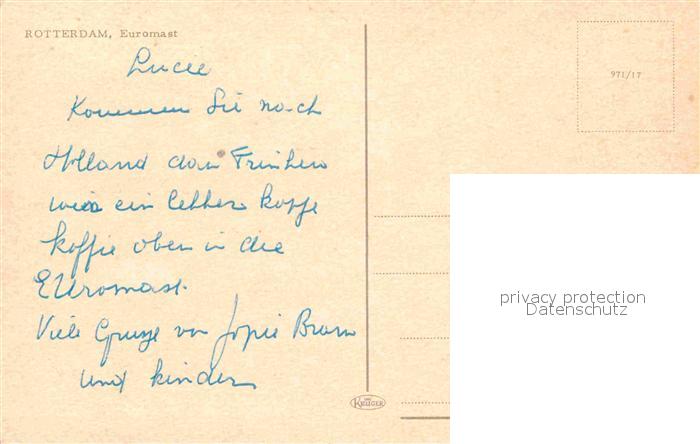 ROTTERDAM, Euromast
Lucee
Kommen Sie nach
Holland dan Trinken
wir ein lekker kopje
koffie oben in die
EUromast.
Viele Grusse von Jopie Bram
und kinder
971/17
KRÜGER
privacy protection
Datenschutz